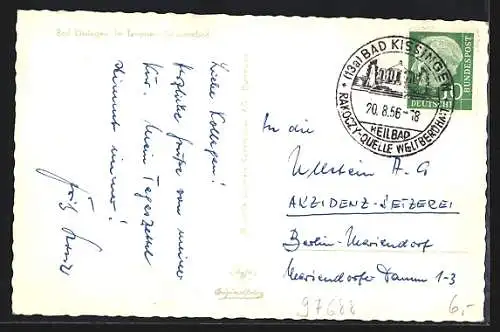 Bad Kissingen im
(13a) BAD KISSINGEN
20.8.56-18
HEILBAD
RAKOCZY-QUELLE WELTBERÜHMT
10
DEUTSCHE BUNDESPOST
Liebe Kollegen!
Herzliche Grüße von meiner
Kur. Mein Tageszettel
stimmt immer!
Fritz
In die
Ullstein A.G
AKZIDENZ-SETZEREI
Berlin-Mariendorf
Mariendorfer Damm 1-3
Agfa
97688
6,-